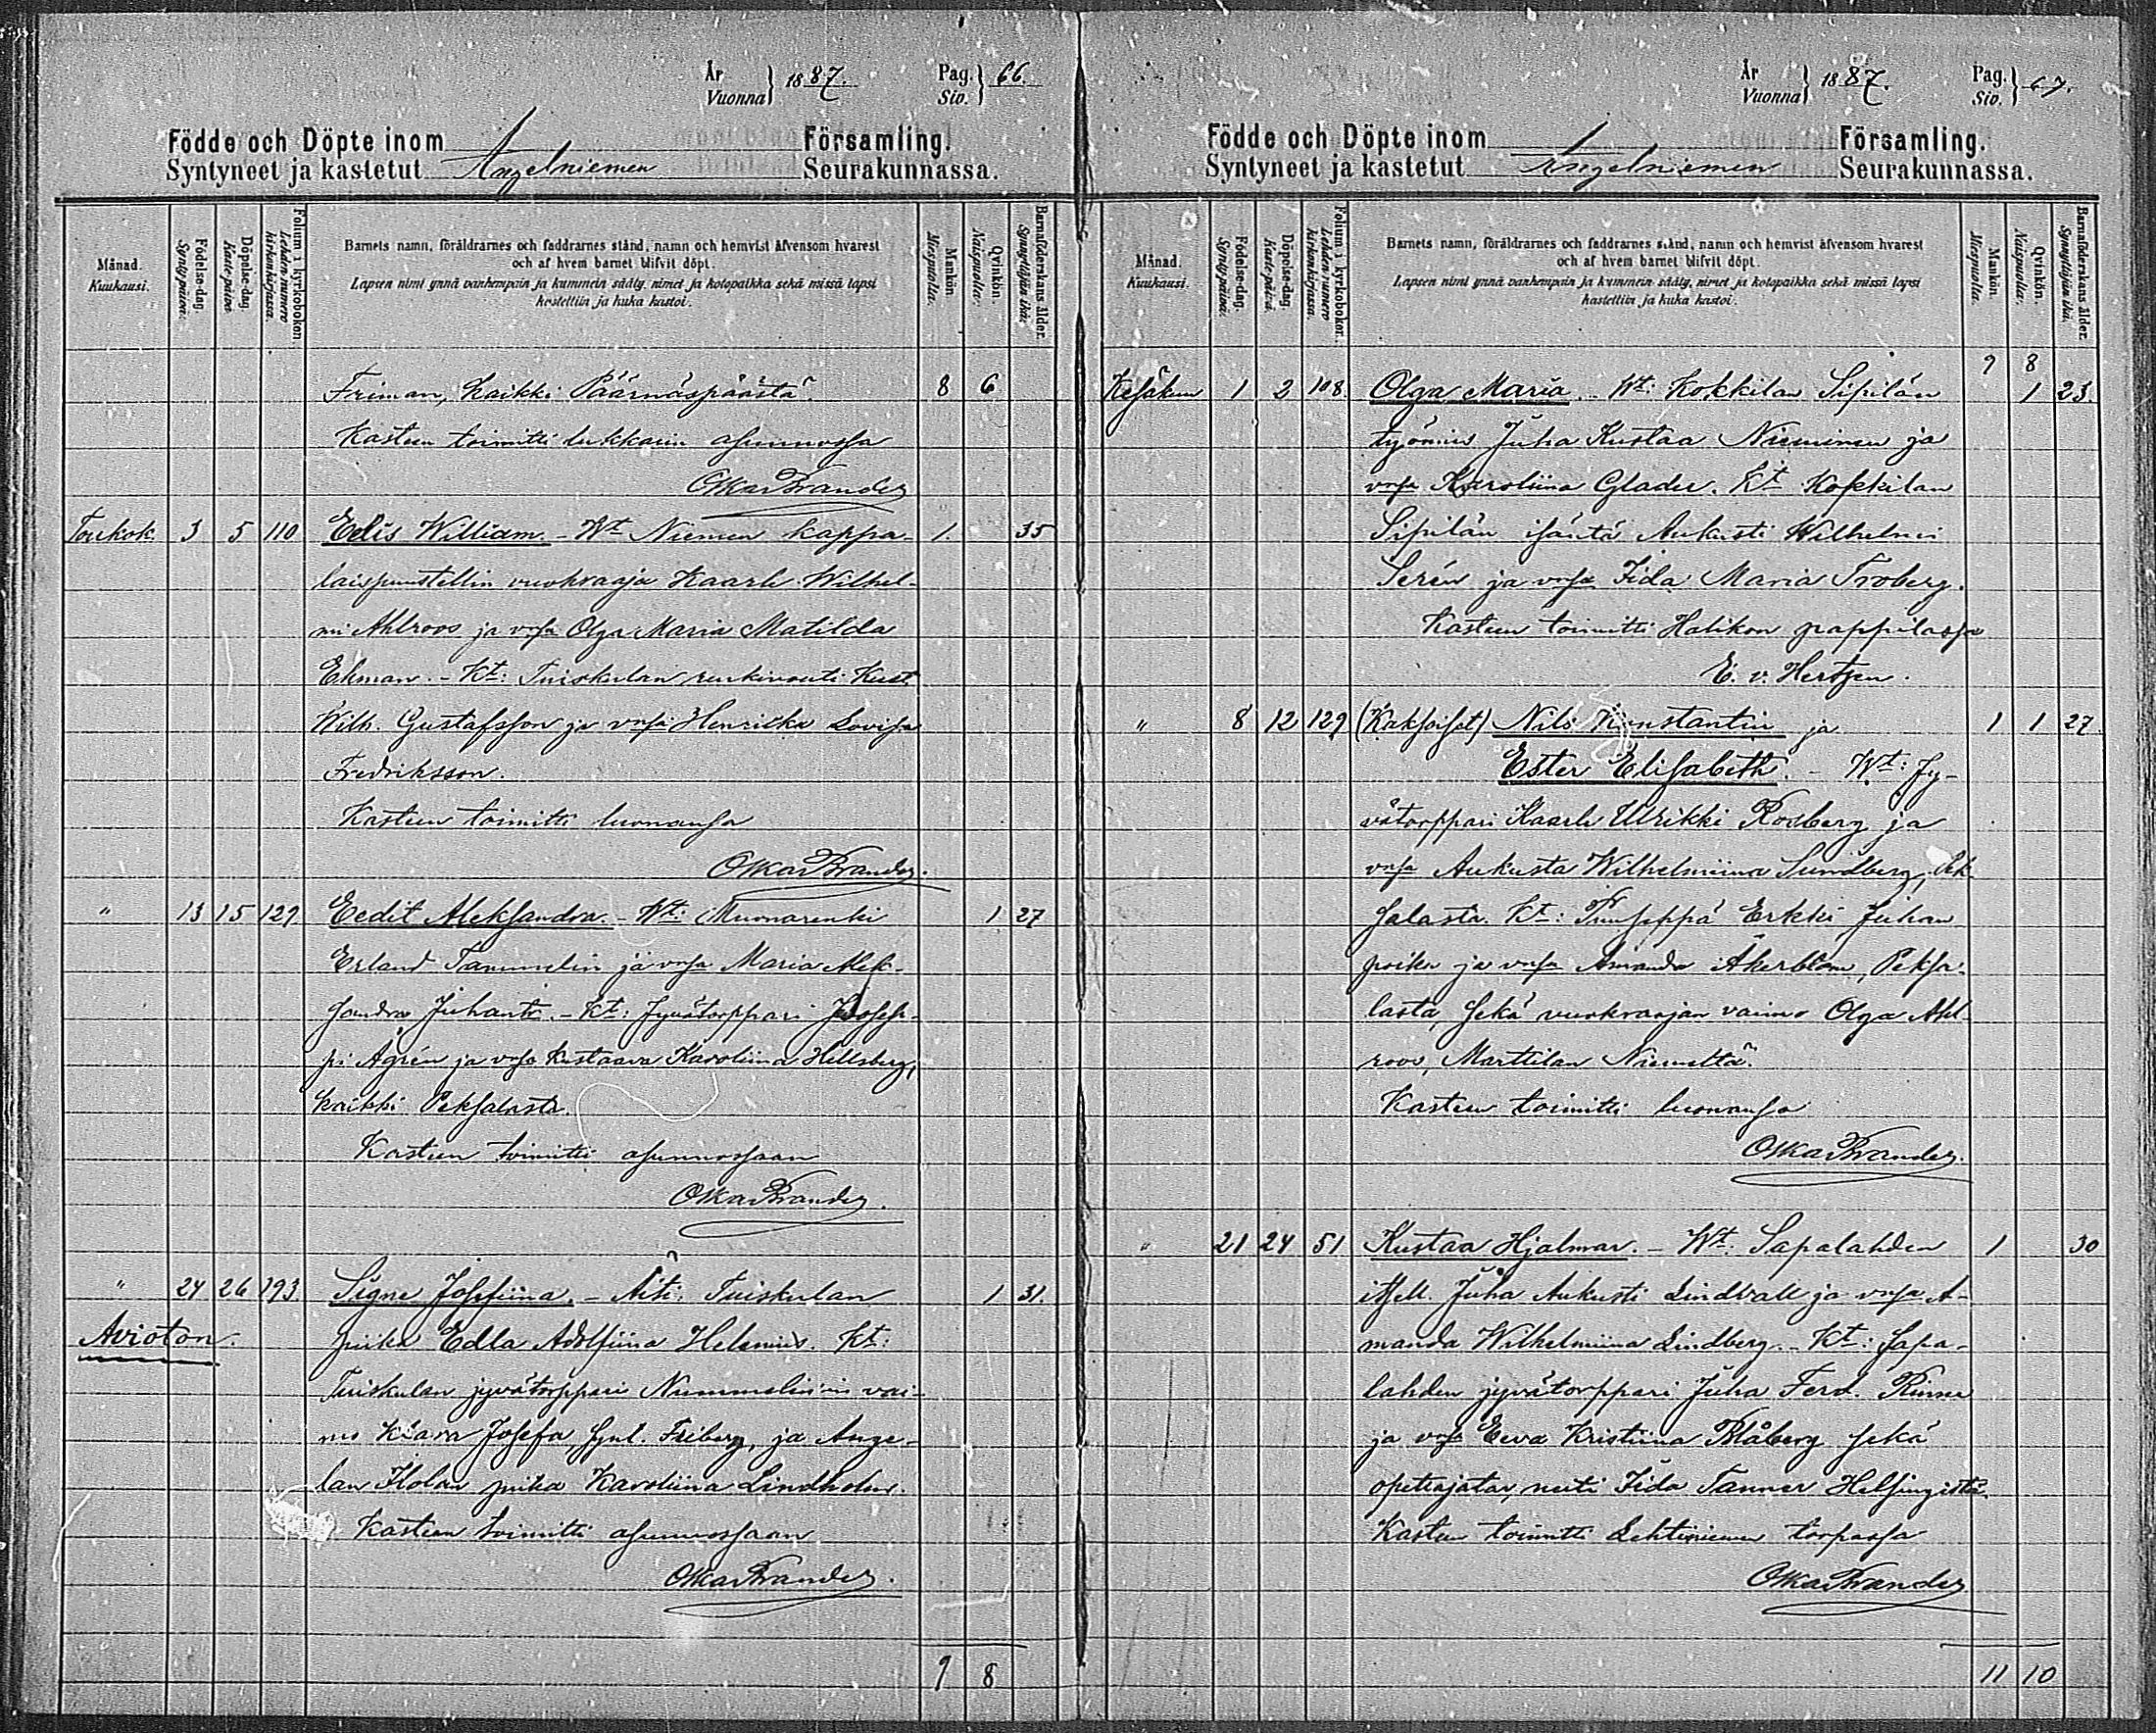 År
Vuonna } 1887.
Pag.
Siv. } 66.
Födde och Döpte inom Församling.
Syntyneet ja kastetut Angelniemen Seurakunnassa.
Månad.
Kuukausi.
Födelse-dag.
Syntypäivä.
Döpelse-dag.
Kaste-päivä
Folium i kyrkoboken.
Lehden numero kirkonkirjassa.
Barnets namn, föräldrarnes och faddrarnes stånd, namn och hemvist äfvensom hvarest
och af hvem barnet blifvit döpt.
Lapsen nimi ynnä vanhempain ja kummein sääty, nimet ja kotopaikka sekä missä lapsi
kastettiin ja kuka kastoi.
Mankön.
Miespuolia.
Qvinkön.
Naispuolia.
Barnaföderskans ålder.
Synnyttäjän ikä.
Friman, kaikki Päärnäspäästä. 8 6
Kasteen toimitti lukkarin asunnossa
Oskar Brander
Toukok. 3 5 110 Edis William. - Wt Niemen kappa- 1. 35
laispuustellin vuokraaja Kaarle Wilhel-
mi Ahlroos ja vmsa Olga Maria Matilda
Ekman. - Kt: Tuiskulan renkivouti Kust.
Wilh. Gustafsson ja vmsa Henrika Lovisa
Fredriksson.
Kasteen toimitti luonansa
Oskar Brander.
" 13 15 129 Eedit Aleksandra. - Wt: Muonarenki 1 27
Erland Tammelin ja vmsa Maria Alek-
sandra Juhant. - Kt: Jyvätorppari Joosep-
pi Agrén ja vmsa Kustaava Karoliina Hellsberg,
kaikki Peksalasta.
Kasteen toimitti asunnossaan
Oskar Brander.
" 24 26 193 Signe Josefiina. - Äiti: Tuiskulan 1 31.
Avioton. piika Edla Adolfiina Helenius. Kt:
Tuiskulan jyvätorppari Nummelinin vai-
mo Klara Josefa, synt. Friberg, ja Ange-
lan Ilolan piika Karoliina Lindholm.
Kasteen toimitti asunnossaan
Oskar Brander.
9 8
År
Vuonna } 1887.
Pag.
Siv. } 67.
Födde och Döpte inom Församling.
Syntyneet ja kastetut Angelniemen Seurakunnassa.
Månad.
Kuukausi.
Födelse-dag.
Syntypäivä.
Döpelse-dag.
Kaste-päivä.
Folium i kyrkoboken.
Lehden numero kirkonkirjassa.
Barnets namn, föräldrarnes och faddrarnes stånd, namn och hemvist äfvensom hvarest
och af hvem barnet blifvit döpt.
Lapsen nimi ynnä vanhempain ja kummein sääty, nimet ja kotopaikka sekä missä lapsi
kastettiin ja kuka kastoi.
Mankön.
Miespuolia.
Qvinkön.
Naispuolia.
Barnaföderskans ålder.
Synnyttäjän ikä.
9 8
Kesäkuu 1 2 108. Olga Maria. Wt: Kokkilan Sipilän 1 23.
työmies Juha Kustaa Nieminen ja
vmsa Karoliina Glader. Kt Kokkilan
Sipilän isäntä Aukusti Wilhelmi
Serén ja vmsa Iida Maria Troberg.
Kasteen toimitti Halikon pappilassa
E. v. Hertzen.
" 8 12 129 (Kaksoiset) Nils Konstantin ja 1 1 27.
Ester Elisabeth. - Wt: Jy-
vätorppari Kaarle Ulrikki Rosberg ja
vmsa Aukusta Wilhelmiina Sundberg, Pek-
salasta. Kt: Puuseppä Erkki Juhan
poika ja vmsa Amanda Åkerblom, Peksa-
lasta, sekä vuokraajan vaimo Olga Ahl-
roos, Marttilan Niemeltä.
Kasteen toimitti luonansa
Oskar Brander.
" 21 24 51 Kustaa Hjalmar. - Wt: Sapalahden 1 30
itsell. Juha Aukusti Lindvall ja vmsa A-
manda Wilhelmiina Lindberg. - Kt: Sapa-
lahden jyvätorppari Juha Ferd. Rinne
ja vmsa Eeva Kristiina Blåberg sekä
opettajatar, neiti Iida Tanner Helsingistä.
Kasteen toimitti Lehtiniemen torpassa
Oskar Brander
11 10